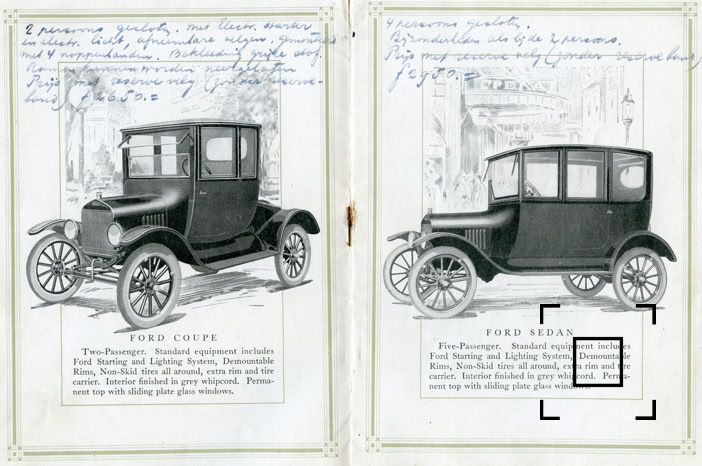 2 persoons gesloten. Met Electr. starter
en electr. licht, afneembare velgen. gemonteerd
met 4 noppenbanden. Bekleeding grijze stof.
worden
Prijs met reserve velg (zonder reserve-
band) f 2650.=
FORD COUPE
Two-Passenger. Standard equipment includes
Ford Starting and Lighting System, Demountable
Rims, Non-Skid tires all around, extra rim and tire
carrier. Interior finished in grey whipcord. Perma-
nent top with sliding plate glass windows.
4 persoons gesloten.
Bijzonderheden als bij de 2 persoons.
Prijs met reserve velg (zonder reserve band)
f 2950.=
FORD SEDAN
Five-Passenger. Standard equipment includes
Ford Starting and Lighting System, Demountable
Rims, Non-Skid tires all around, extra rim and tire
carrier. Interior finished in grey whipcord. Perma-
nent top with sliding plate glass windows.